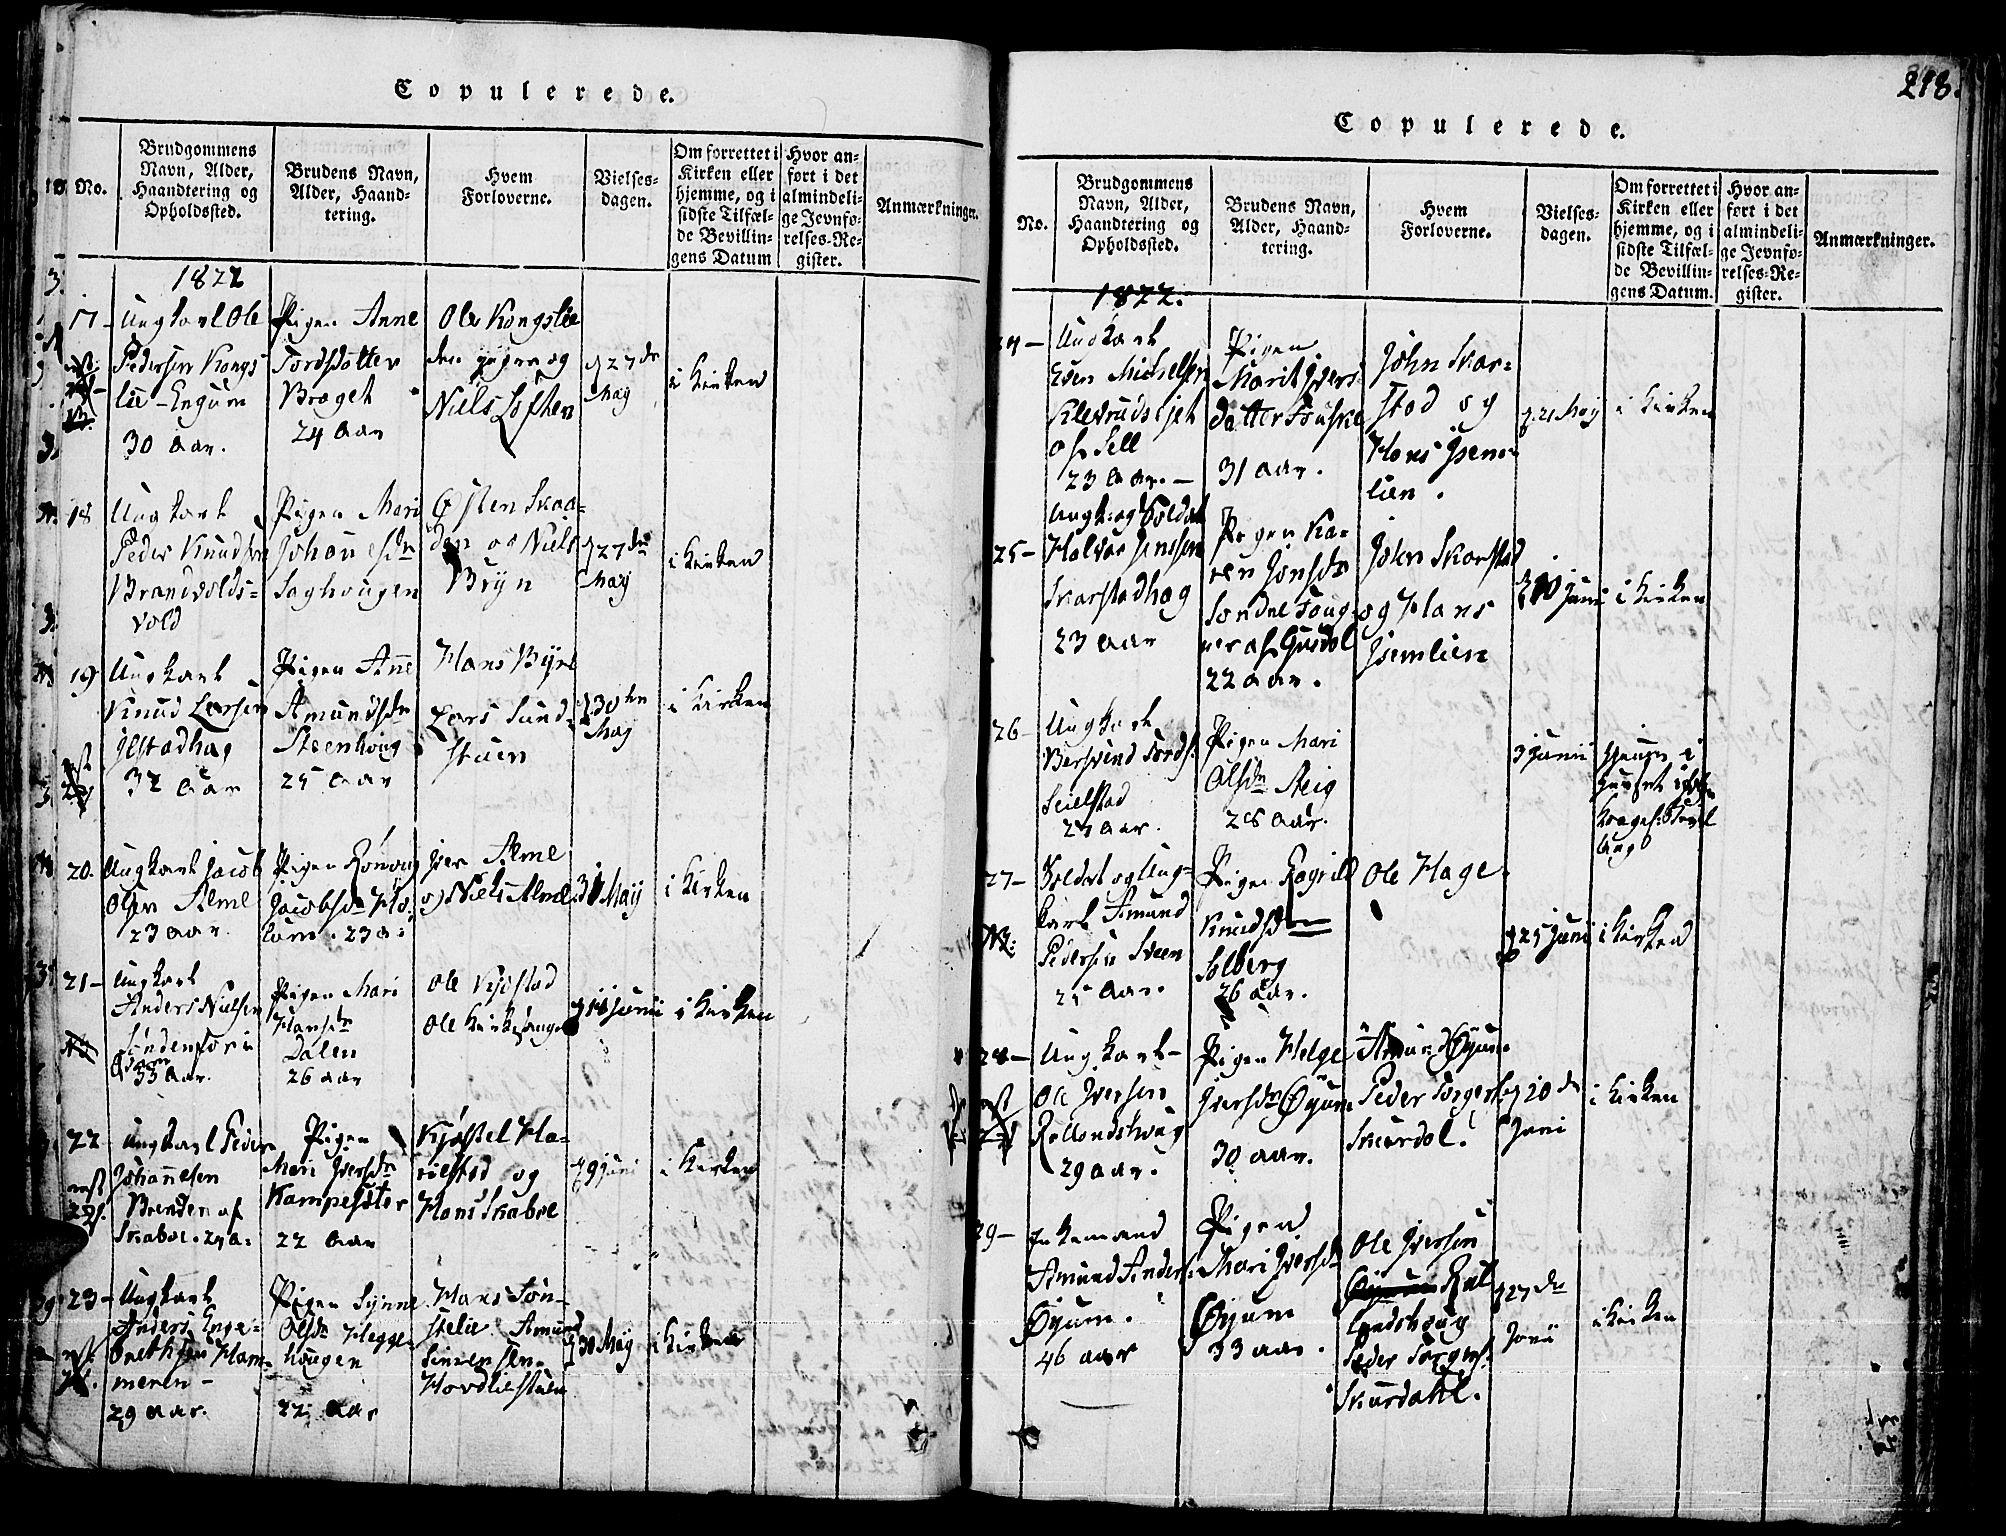 Copulerede.
No.
Brudgommens
Navn, Alder,
Haandtering og
Opholdssted.
Brudens Navn,
Alder, Haand-
tering.
Hvem
Forloverne.
Vielses-
dagen.
Om forrettet i
Kirken eller
hjemme, og i
sidste Tilfæl-
de Bevillin-
gens Datum
Hvor an-
ført i det
almindeli-
ge Jevnfø-
relses-Re-
gister.
Anmærkninger.
1822
17-
Ungkarl Ole
Pedersen Kongs
lie-Engum
30 Aar.
Pigen Anne
Tordsdotter
Braget
24 Aar
Ole Kongslie
og
Niels Loften
27de
May
i Kirken
18
Ungkarl
Peder Knudsen
Brandvolds=
vold
Pigen Mari
Johanesdr
Saghougen
Østen Skaa=
den og Niels
Bryn
27de
May
i Kirken
19
Ungkarl
Knud Larsen
Jlstadhag
32 Aar
Pigen Anne
Amundsdr
Steenhoug
25 Aar
Hans Byre
Lars Sund-
stuen
30te
May
i Kirken
20.
Ungkarl Jacob
Olsen Alme
23 Aar.
Pigen Rønnoug
Jacobsdr Ho-
lum. 23 a:
Iver Alme
og Niels Alme
31 May
i Kirken
21-
Ungkarl
Anders Nielsen
Søndenfor i
33 Aar.
Pigen Mari
Hansdr
Dalen
26 aar
Ole Kjøstad
Ole
Junii
i Kirken
22
Ungkarl Peder
Johannesen
Brenden af
Skaboe. 24 a:
Pigen
Mari Iversdr
Kampesæter
22 Aar
Kjøstel Ha-
relstad og
Hans Skaboe
9 Juni
i Kirken
23-
Ungkarl
Anders Enge-
brethsen Ham-
meren-
29 Aar.
Pigen Synne
Olsdr Hegge-
hougen
22 Aar
Hans Søn-
stelie Amund
Simensen
Hovdliestuen
30 May
i Kirken
218.
Copulerede.
No.
Brudgommens
Navn, Alder,
Haandtering og
Opholdssted.
Brudens Navn,
Alder, Haand-
tering.
Hvem
Forloverne.
Vielses-
dagen.
Om forrettet i
Kirken eller
hjemme, og i
sidste Tilfæl-
de Bevillin-
gens Datum.
Hvor an-
ført i det
almindeli-
ge Jevnfø-
relses-Re-
gister.
Anmærkninger.
1822.
24-
Ungkarl
Even Michelsen
Klevrudsejet
af Sell
23 Aar.-
Pigen
Marit Ivers-
datter Fouske
31 Aar.
John Skar=
stad og
Hans Isem-
lien.
21 May
i Kirken
25-
Ungk: og Soldat
Halvor Jensen
Skarstadhag
23 Aar
Pigen Ka-
ren Jonsdr
Søndre Toug-
af Qusdol
22 aar.
John Skarstad
og Hans
Isemlien
Juni
i Kirken
26-
Ungkarl
Bersvend Tords.
Seielstad
Aar.
Pigen Mari
Olsdr Steig
28 Aar.
3 Junii
Hjemme i
Huset
27-
Soldat og Ung-
karl Amund
Pedersen Sveen
25 Aar.
Pigen Ragnild
Knudsdr
Solberg
26 aar.
Ole Hage
25 Juni
i Kirken
28-
Ungkarl-
Ole Iversen
Rollandshoug
29 aar.
Pigen Helge
Iversdr Øyum
30 aar.
Amund Øyum
Peder Torgers.
Skurdol.
20de
Juni
i Kirken
29-
Enkemand
Amund Anders.
Øyum.
46 aar
Pigen
Mari Iversdr
Øyum
33 aar.
Ole Iversen
Øyum Rul
landshoug
Peder Torgers.
Skurdahl.
27de
Junii
i Kirken